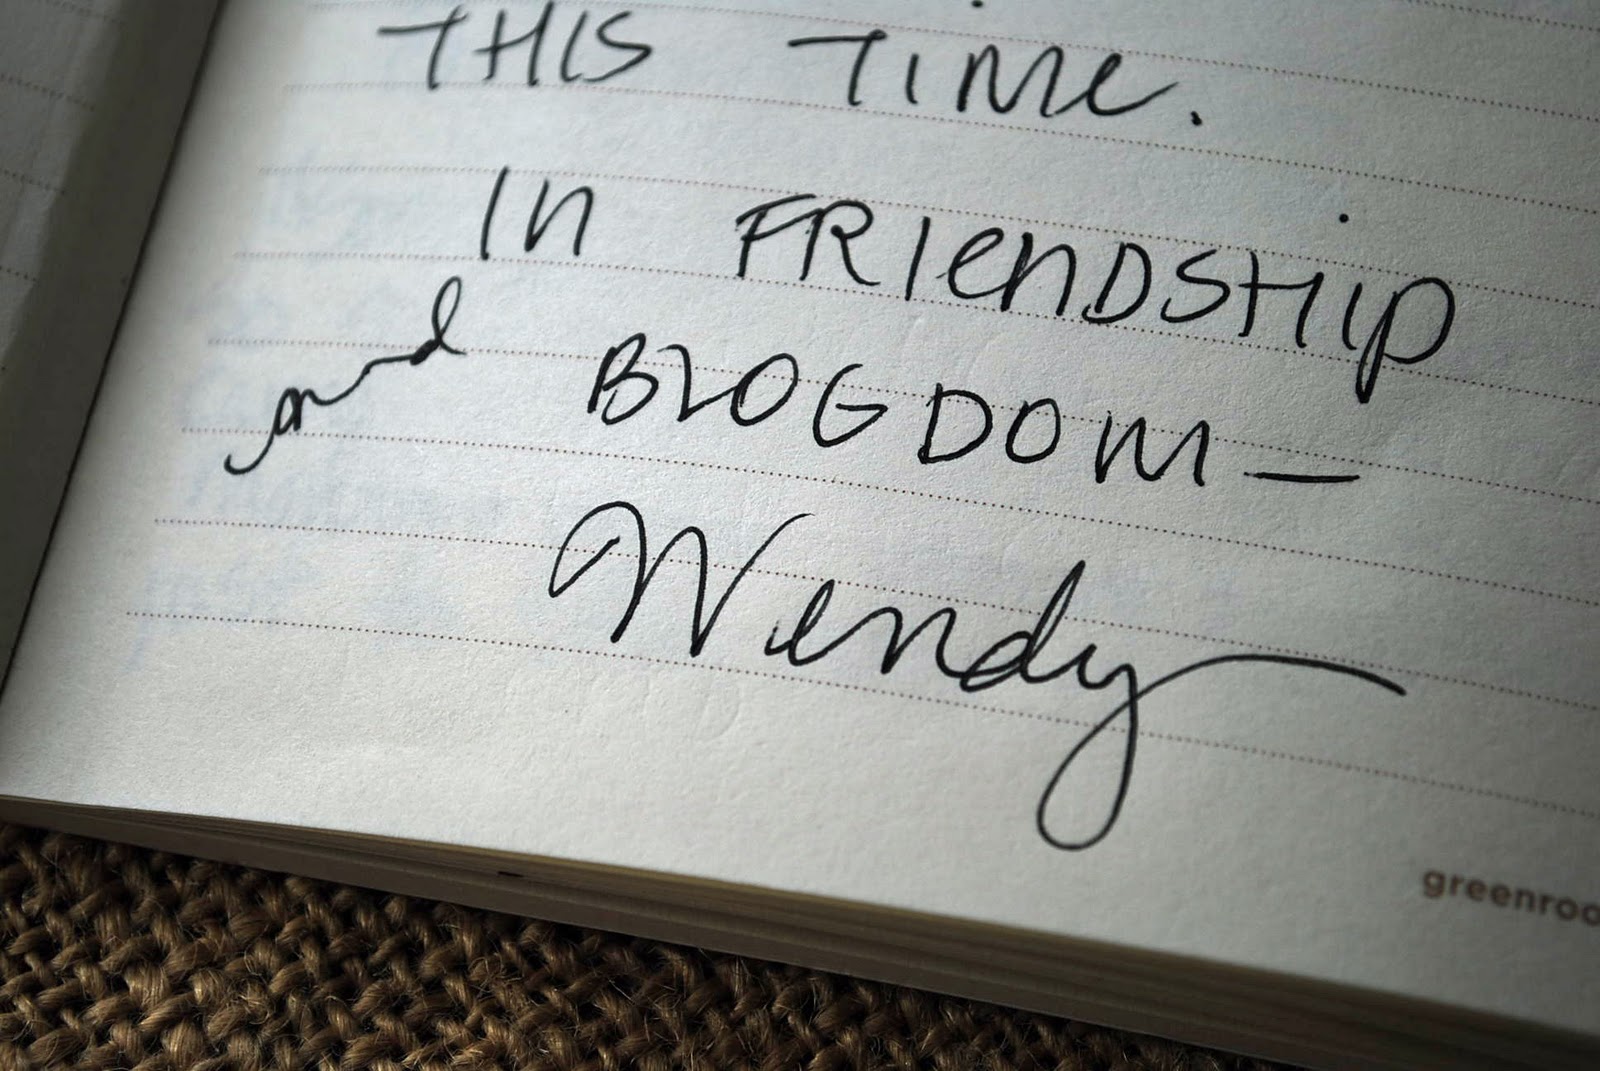 THIS TIME.
IN FRIENDSHIP
and BLOGDOM—
Wendy
greenroo